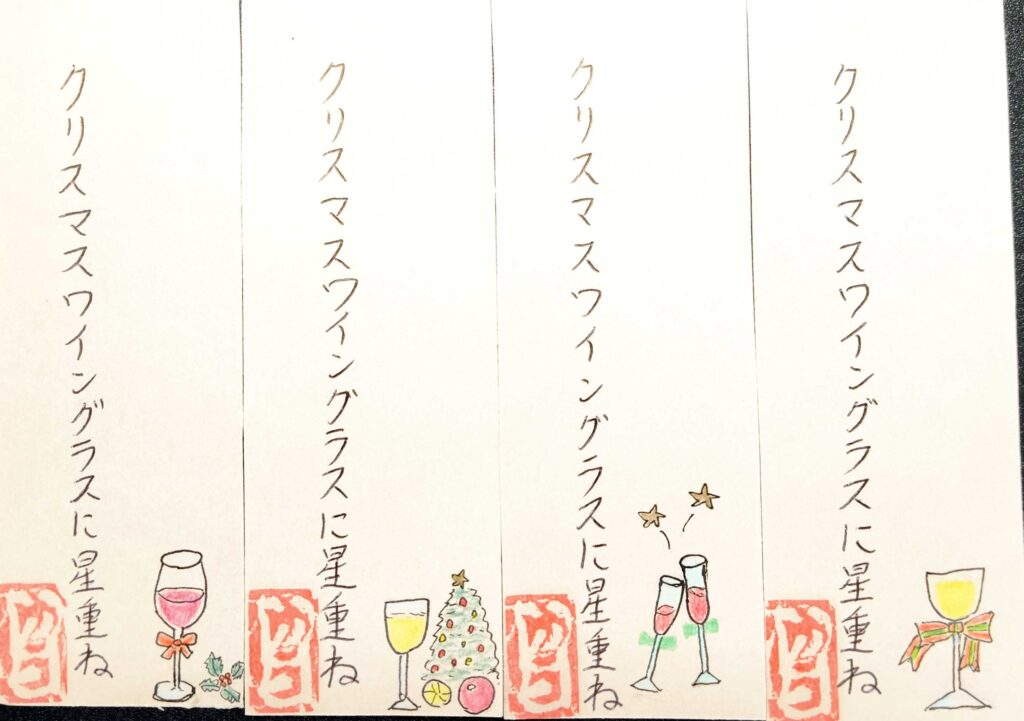 クリスマスワイングラスに星重ね
クリスマスワイングラスに星重ね
クリスマスワイングラスに星重ね
クリスマスワイングラスに星重ね